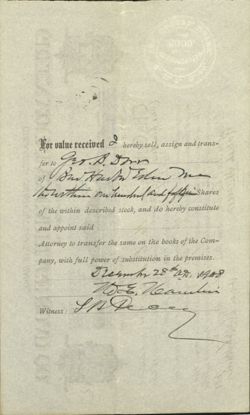 For value received I hereby sell, assign and trans-
fer to Geo. B. Dorr
of Bar Harbor Eden Me
the within one hundred and fifteen Shares
of the within described stock, and do hereby constitute
and appoint said
Attorney to transfer the same on the books of the Com-
pany, with full power of substitution in the premises.
December 28th 1908
Witness: